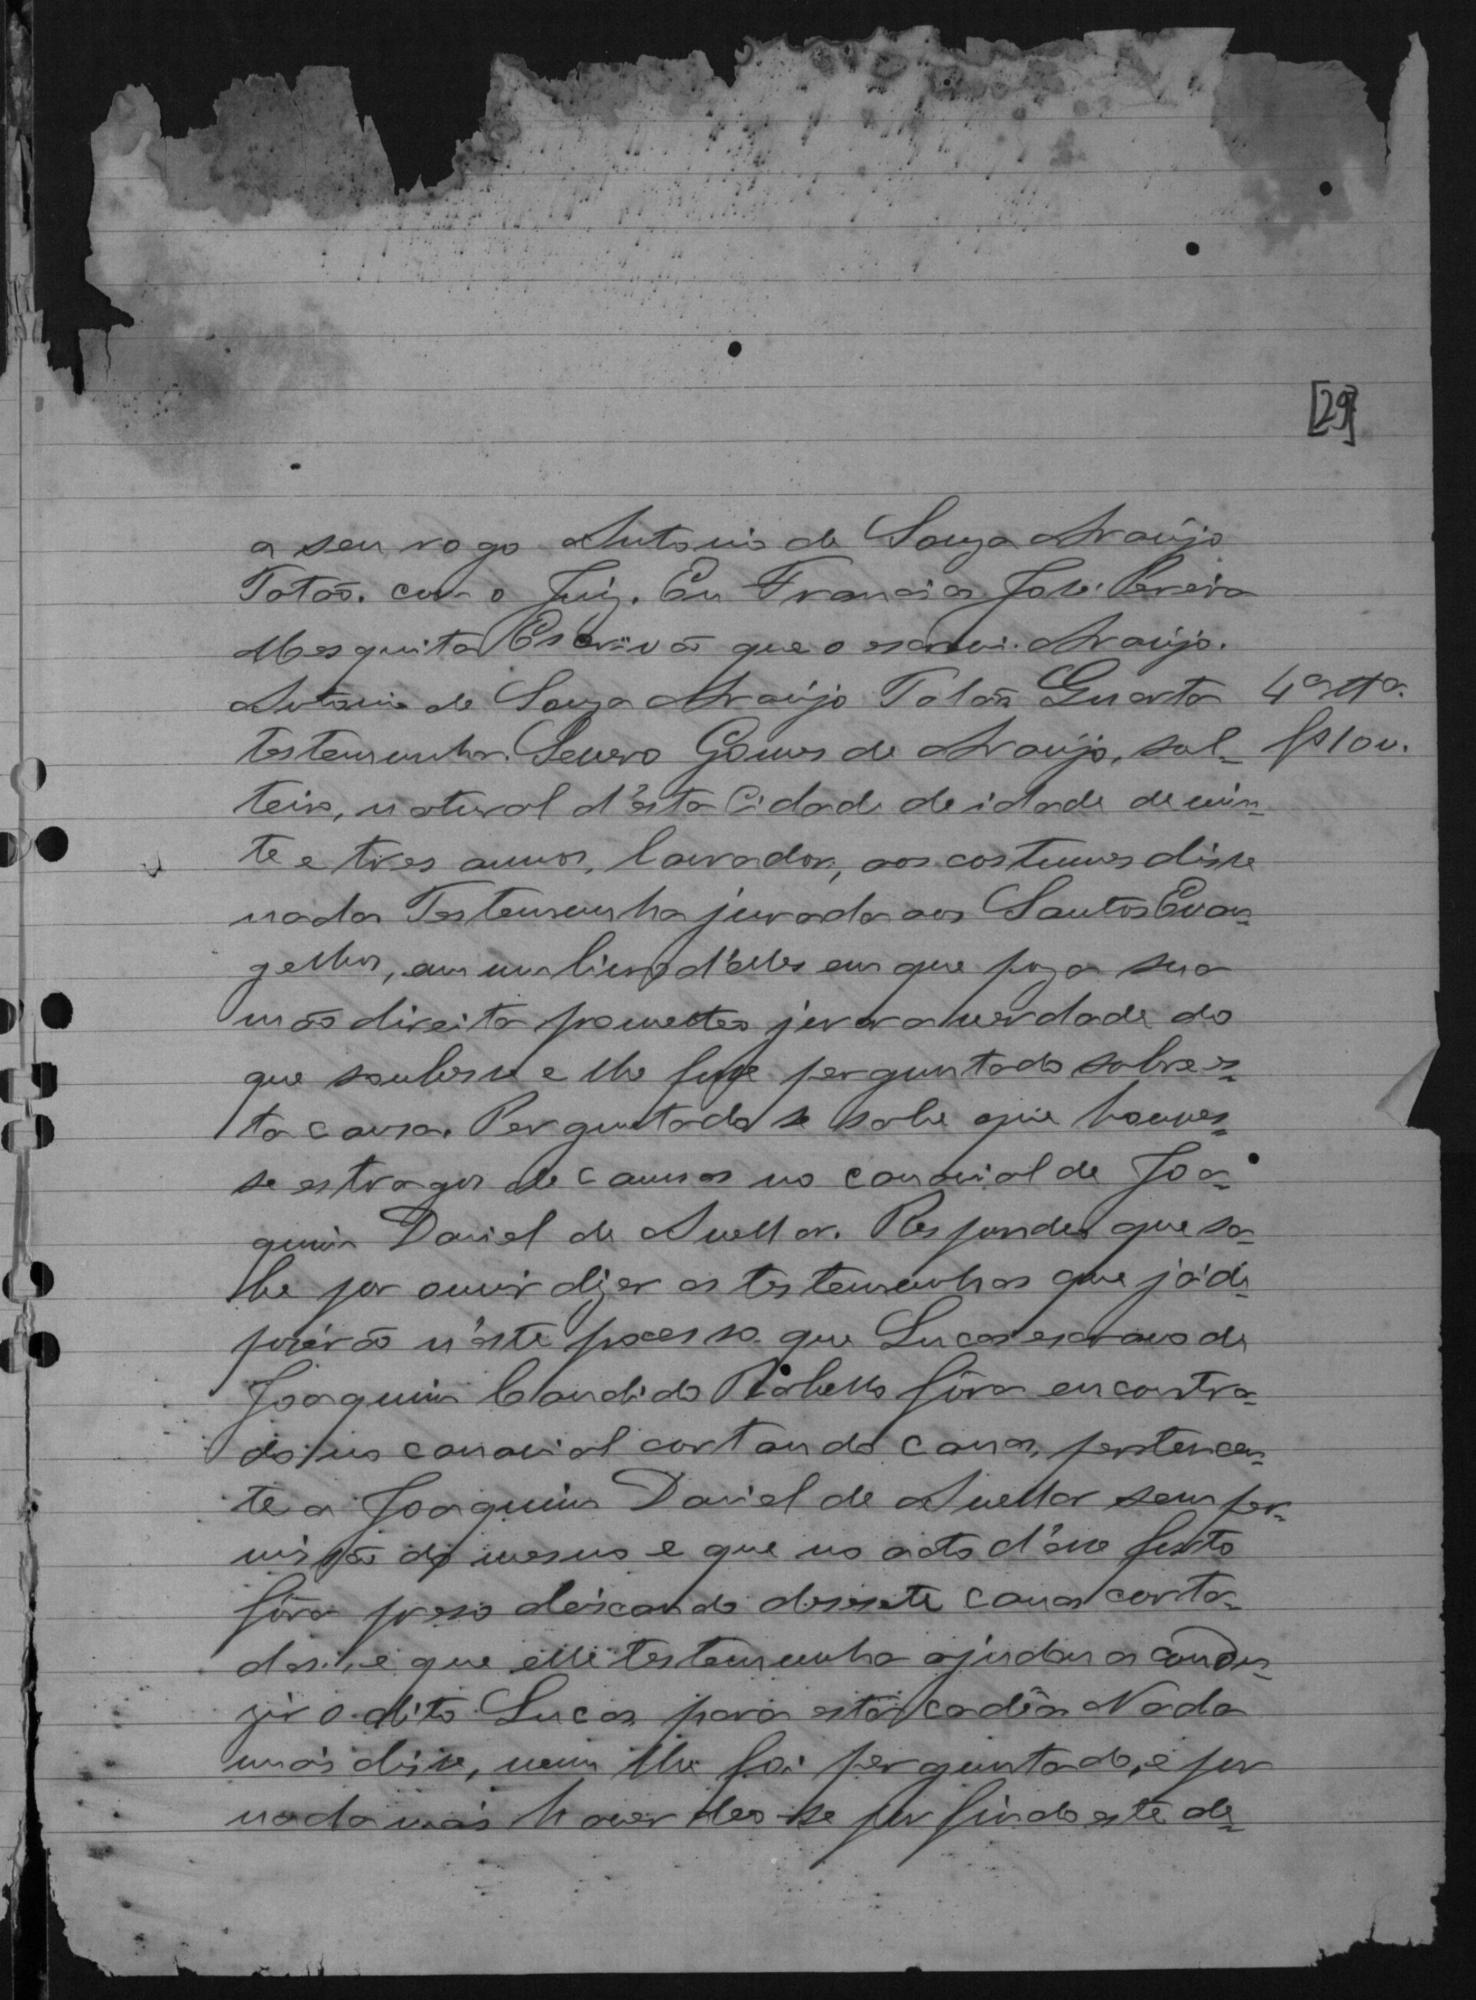 [29]
a seu rogo Antonio de Souza Araújo
Totão. com o Juiz. Eu Francisco José Pereira
Mesquita Escrivão que o escrevi. Araújo.
Antonio de Souza Araújo Totão Quarta
4ª ttª.
testemunha. Severo Gomes de Araújo, sol-
fs 10 v.
teiro, natural d'esta Cidade de idade de vin-
te e tres annos, lavrador, aos costumes disse
nada Testemunha jurada aos Santos Evan-
gelhos, em um livro d'elles em que poz a sua
mão direita prometteo jurar a verdade do
que soubesse e lhe fosse perguntado sobre es-
ta causa. Perguntado se sabe que houves-
se estragos de cannas no canavial de Joa-
quim Daniel de Avellar. Respondeo que sa-
be por ouvir dizer as testemunhas que já de-
pozérão n'este processo que Lucas escravo de
Joaquim Candido Rabello fôra encontra-
do no canavial cortando canas, pertencen-
te a Joaquim Daniel de Avellar sem per-
missão do mesmo e que no acto d'esse furto
fôra preso deixando desesete canas corta-
das, e que elle testemunha ajudara a condu-
zir o dito Lucas para esta cadêa Nada
mais disse, nem lhe foi perguntado, e por
nada mais haver deo-se por findo este de-